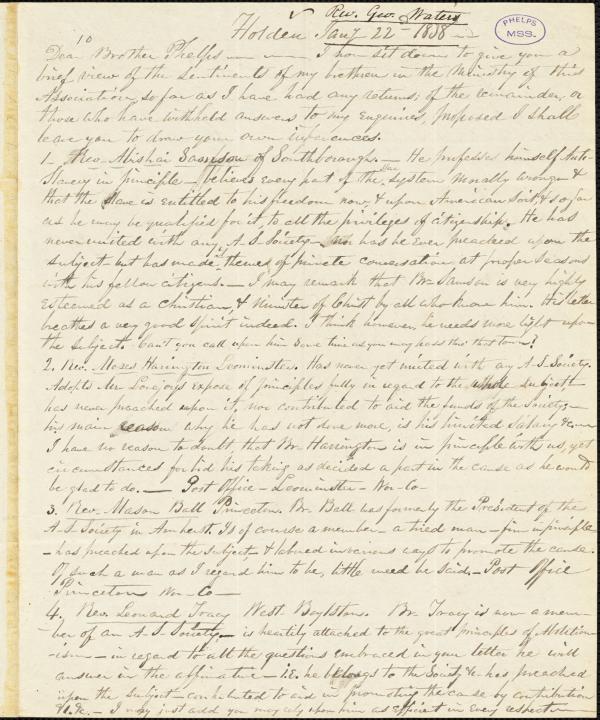 Rev. Geo. Waters
Holden Jany 22 - 1838
PHELPS MSS.
10
Dear Brother Phelps — I now sit down to give you a
brief view of the sentiments of my brethren in the Ministry of this
Association, so far as I have had any returns; of the remainder, or
those who have withheld answers to my enquiries, proposed I shall
leave you to draw your own inferences.
1 - Rev. Abishai Samson of Southborough. — He professes himself Anti-
Slavery in principle - believes every part of the system morally wrong - &
that the slave is entitled to his freedom now, & upon American soil & so far
as he may be qualified for it, to all the privileges of citizenship. He has
never united with any A. S. Society - nor has he ever preached upon the
subject - but has made it theme of private conversation at proper seasons
with his fellow citizens. — I may remark that Br. Samson is very highly
esteemed as a Christian, & Minister of Christ by all who know him. His letter
breathes a very good spirit indeed. I think however, he needs more light upon
the subject. Can't you call upon him some time as you may pass thro' that town?
2. Rev. Moses Harington Leominster. Has never yet united with any A-S-Society.
Adopts Mr Lovejoy's expose of principles fully in regard to the whole subject,
has never preached upon it, nor contributed to aid the funds of the Society; -
his main reason why he has not done more, is his limited salary &c. —
I have no reason to doubt that Br. Harrington is in principle with us, yet
circumstances forbid his taking as decided a part in the cause as he would
be glad to do. — Post Office - Leominster - Wor-Co-
3. Rev. Mason Ball Princeton. Br. Ball was formerly the President of the
A-S Society in Amherst. Is of course a member - a tried man - firm in principle
- has preached upon the subject - & labored in various ways to promote the cause.
Of such a man as I regard him to be, little need be said - Post Office
Princeton Wor-Co —
4. Rev. Leonard Tracy West Boylston. Br. Tracy is now a mem-
ber of an A-S-Society — is heartily attached to the great principles of Abolition-
ism - in regard to all the questions embraced in your letter he will
answer in the affirmative - i.e. he belongs to the Society &c has preached
upon the subject - contributed to aid in promoting the cause by contribution
&c. &c. - I may just add you may rely upon him as efficient in every respect —